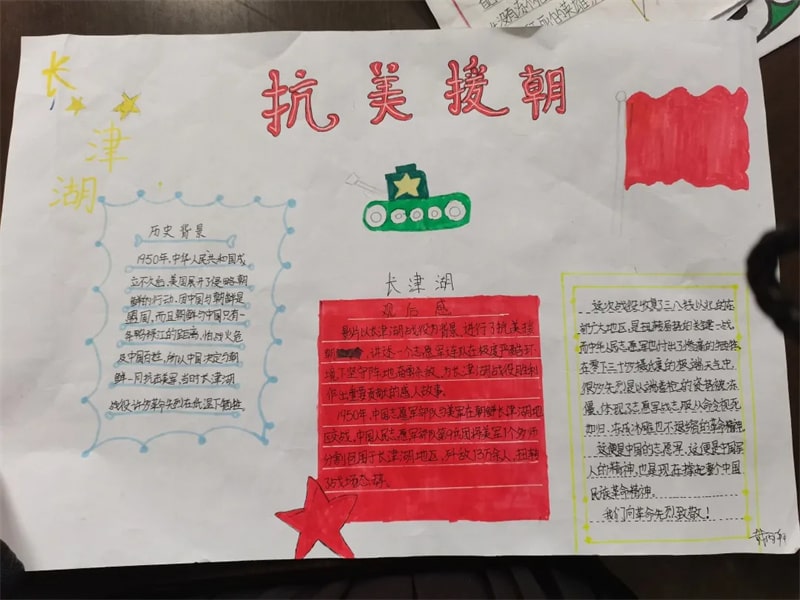 长
津
湖
抗美援朝
历史背景
1950年,中华人民共和国成
立不久后,美国展开了侵略朝
鲜的行动,因中国与朝鲜是
盟国,而且朝鲜与中国只有一
年鸭绿江的距离,怕战火危
及中国百姓,所以中国决定与朝
鲜一月抗击美军,当时长津湖
战役许多革命先烈在低温下牺牲。
长津湖
观后感
影片以长津湖战役为背景,进行了抗美援
朝,讲述一个志愿军连队在极度严酷环
境下坚守阵地奋勇杀敌,为长津湖战役胜利
作出重要贡献的感人故事。
1950年,中国志愿军部队与美军在朝鲜长津湖地
区交战,中国人民志愿军部队第9兵团将美军1个多师
分割包围于长津湖地区,歼敌1.3万余人,扭转
了战场态势。
这次战役收复了三八线以北的东
部广大地区,是
中华人民志愿军也付出了惨重的
在零下三十多摄氏度的极端天气中,
很多先烈是以端着枪的姿势被冻
僵,体现了志愿军战士服从命令视死
如归,冻成冰雕也不退缩的革命精神
这便是中国的志愿军,这便是中国军
人的精神,也是现在撑起整个中国
民族革命精神。
我们向革命先烈致敬!